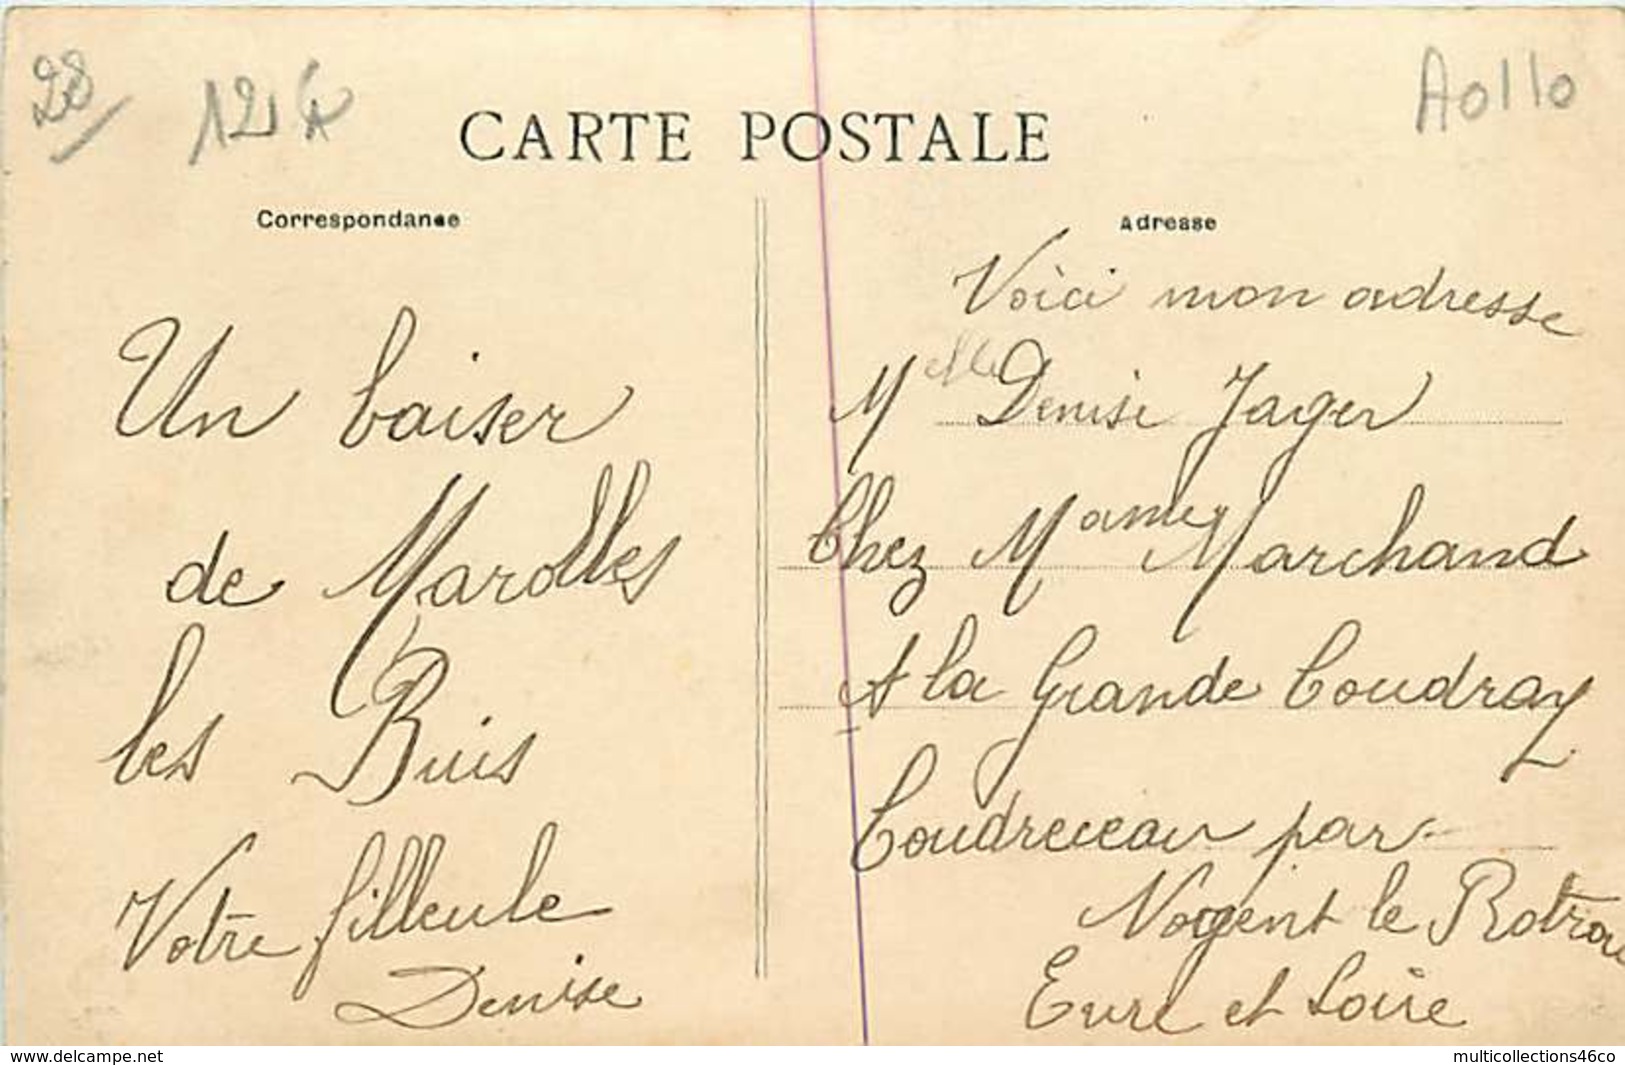 28
CARTE POSTALE
A01110
Correspondance
Un baiser
de Marolles
les Buis
Votre filleule
Denise
Adresse
Voici mon adresse
Melle Denise Jager
Chez Mame Marchand
A la Grande Coudray
Coudreceau par
Nogent le Rotrou
Eure et Loire
www.delcampe.net
multicollections46co